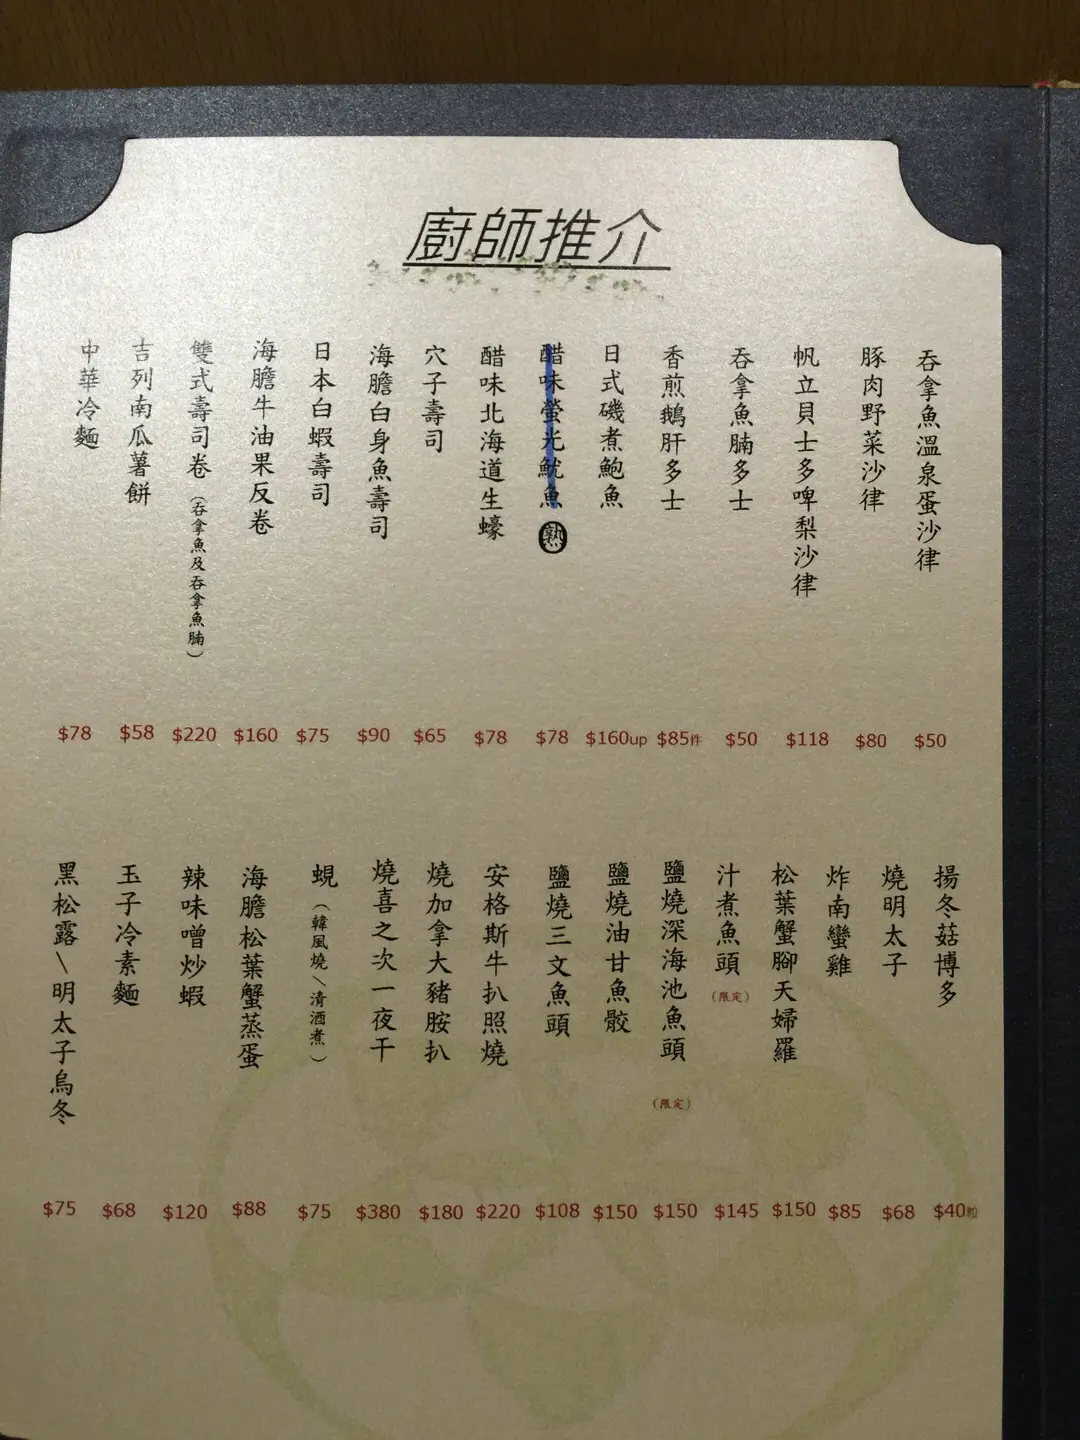 廚師推介
吞拿魚溫泉蛋沙律
豚肉野菜沙律
帆立貝士多啤梨沙律
吞拿魚腩多士
香煎鵝肝多士
日式磯煮鮑魚
醋味螢光魷魚 熟
醋味北海道生蠔
穴子壽司
海膽白身魚壽司
日本白蝦壽司
海膽牛油果反卷
雙式壽司卷（吞拿魚及吞拿魚腩）
吉列南瓜薯餅
中華冷麵
$50
$80
$118
$50
$85件
$160up
$78
$78
$65
$90
$75
$160
$220
$58
$78
揚冬菇博多
燒明太子
炸南蠻雞
松葉蟹腳天婦羅
汁煮魚頭（限定）
鹽燒深海池魚頭（限定）
鹽燒油甘魚骹
鹽燒三文魚頭
安格斯牛扒照燒
燒加拿大豬胺扒
燒喜之次一夜干
蜆（韓風燒\清酒煮）
海膽松葉蟹蒸蛋
辣味噌炒蝦
玉子冷素麵
黑松露\明太子烏冬
$40粒
$68
$85
$150
$145
$150
$150
$108
$220
$180
$380
$75
$88
$120
$68
$75